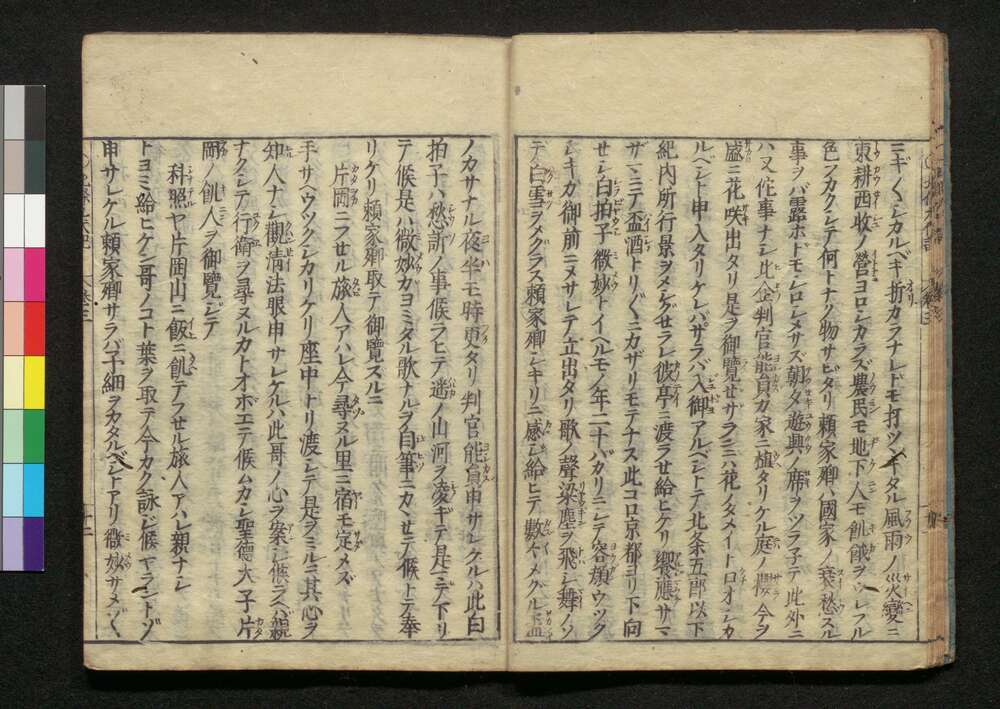 ニギ〱シカルベキ折カラナレドモ打ツヾキタル風雨ノ災變ニ
東耕西收ノ營ヨロシカラズ農民モ地下人モ飢餓ヲウレフル
色フカクシテ何トナク物サビタリ頼家卿ハ國家ノ衰愁スル
事ヲバ露ホドモシロシメサズ朝夕遊興ノ席ヲツラ子テ此外ニ
ハ又佗事ナシ此企判官能員ガ家ニ植タリケル庭ノ櫻今ヲ
盛ニ花咲出タリ是ヲ御覽ゼサランハ花ノタメイトロオシカ
ルベシト申入タリケレバサラバ入御アルベシトテ北条五郎以下
紀内所行景ヲメシグセラレ彼亭ニ渡ラせ給ヒケリ饗應サマ
ザマニテ盃酒トリ〲ニカザリモテナス此コロ京都ヨリ下向
せシ白拍子微妙トイヘルモノ年二十バカリニシテ容顔ウツク
シキガ御前ニメサレテ立出タリ歌ノ聲梁塵ヲ飛シ舞ノソ
デハ白雪ヲメグラス頼家卿シキリニ感ジ給ヒテ數ヘメグル盃
ノカサナル夜半モ時更タリ判官能員申サレケルハ此白
拍子ハ愁訴ノ事候ラヒテ遥ノ山河ヲ凌ギテ是マデ下リ
テ候是ハ微妙カヨミタル歌ナルヲ自筆ニカヽせテ候トテ奉
リケリ頼家卿取テ御覽スルニ
片岡ニフせル旅人アハレ今尋ヌル里ニ宿モ定メズ
手サヘウツクシカリケリ座中トリ渡シテ是ヲミルニ其心ヲ
知人ナシ觀清法眼申サレケルハ此哥ノ心ヲ案ジ候ニコヘハ親
ナクシテ行衛ヲ尋ヌルカトオボエテ候ムカシ聖德太子片
岡ノ飢人ヲ御覽ジテ
科照ヤ片岡山ニ飯ニ飢テフせル旅人アハレ親ナシ
トヨミ給ヒケン哥ノコト葉ヲ取テ今カク詠ジ候ヤラントゾ
申サレケル頼家卿サラバ子細ヲカタルベシトアリ微妙サメ〲